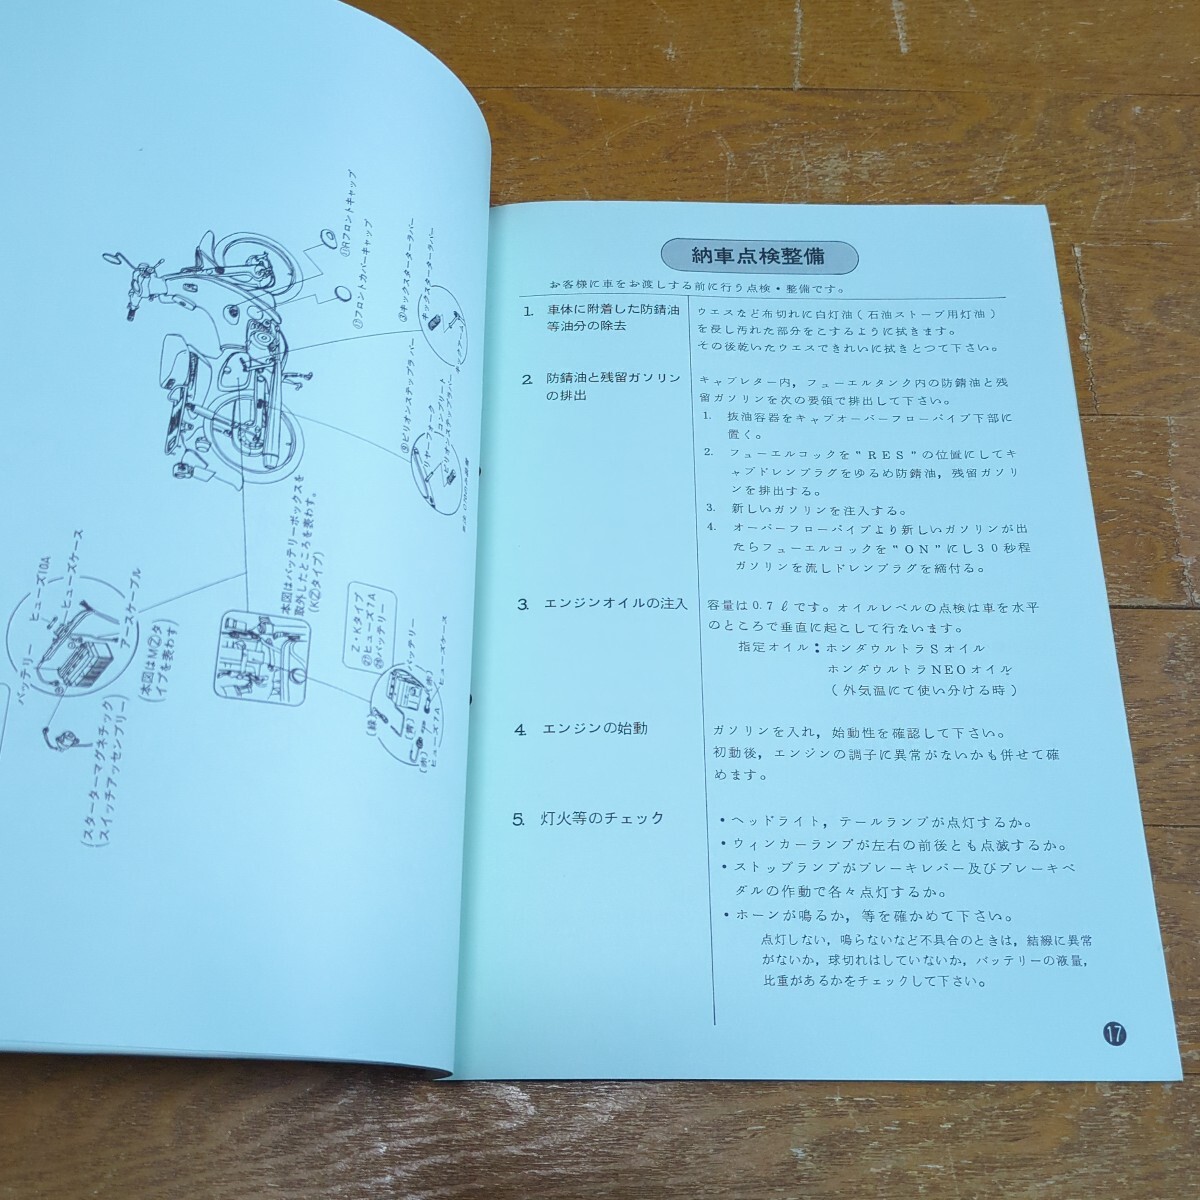 ⑱Rフロントキャップ
⑰フロントカバーキャップ
キックスターターラバー
ピリオンステップラバー
リヤーフォーク
コンプリート
ピリオンステップラバー
ヒューズ10A
ヒューズケース
バッテリー
アースケーブル
(本図はMⓏタ
イプを表わす)
(スターターマグネチック
スイッチアッセンブリー)
本図はバッテリーボックスを
取外したところを表わす。
(KⓏタイプ)
Z・Kタイプ
ヒューズ7A
バッテリー
バッテリー
ヒューズケース
(緑)
(青)
(赤)
(赤)
ヒューズ7A
納車点検整備
お客様に車をお渡しする前に行う点検・整備です。
1. 車体に附着した防錆油
等油分の除去
ウエスなど布切れに白灯油(石油ストーブ用灯油)
を浸し汚れた部分をこするように拭きます。
その後乾いたウエスできれいに拭きとつて下さい。
2. 防錆油と残留ガソリン
の排出
キャブレター内，フューエルタンク内の防錆油と残
留ガソリンを次の要領で排出して下さい。
1. 抜油容器をキャブオーバーフローパイプ下部に
置く。
2. フューエルコックを"RES"の位置にしてキ
ャブドレンプラグをゆるめ防錆油，残留ガソリ
ンを排出する。
3. 新しいガソリンを注入する。
4. オーバーフローパイプより新しいガソリンが出
たらフューエルコックを"ON"にし30秒程
ガソリンを流しドレンプラグを締付る。
3. エンジンオイルの注入
容量は0.7ℓです。オイルレベルの点検は車を水平
のところで垂直に起こして行ないます。
指定オイル：ホンダウルトラSオイル
ホンダウルトラNEOオイル
(外気温にて使い分ける時)
4. エンジンの始動
ガソリンを入れ，始動性を確認して下さい。
初動後，エンジンの調子に異常がないかも併せて確
めます。
5. 灯火等のチェック
・ヘッドライト，テールランプが点灯するか。
・ウィンカーランプが左右の前後とも点滅するか。
・ストップランプがブレーキレバー及びブレーキペ
ダルの作動で各々点灯するか。
・ホーンが鳴るか，等を確かめて下さい。
点灯しない，鳴らないなど不具合のときは，結線に異常
がないか，球切れはしていないか，バッテリーの液量，
比重があるかをチェックして下さい。
17